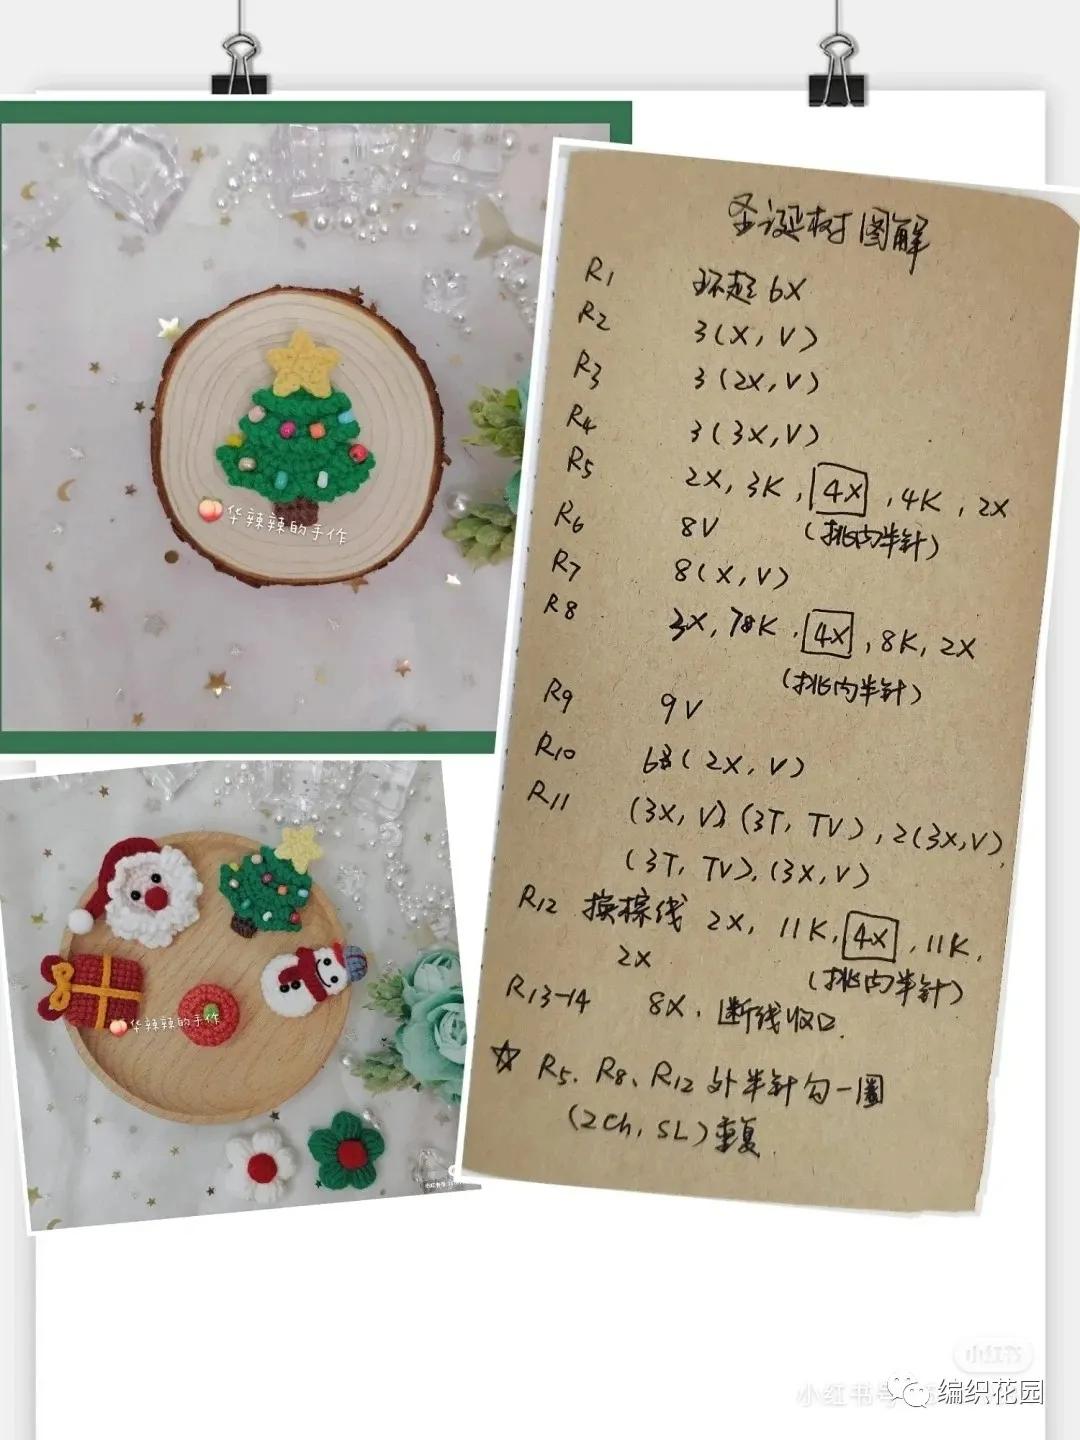 华辣辣的手作
圣诞树图解
R1 环起 6X
R2 3(X, V)
R3 3(2X, V)
R4 3(3X, V)
R5 2X, 3K, 4X, 4K, 2X
(挑内半针)
R6 8V
R7 8(X, V)
R8 3X, 78K, 4X, 8K, 2X
(挑内半针)
R9 9V
R10 6(2X, V)
R11 (3X, V), (3T, TV), 2(3X, V),
(3T, TV), (3X, V)
R12 换棕线 2X, 11K, 4X, 11K,
2X
(挑内半针)
R13-14 8X, 断线收口.
☆ R5、R8、R12 外半针勾一圈
(2ch, SL) 重复
华辣辣的手作
小红书
小红书号
编织花园